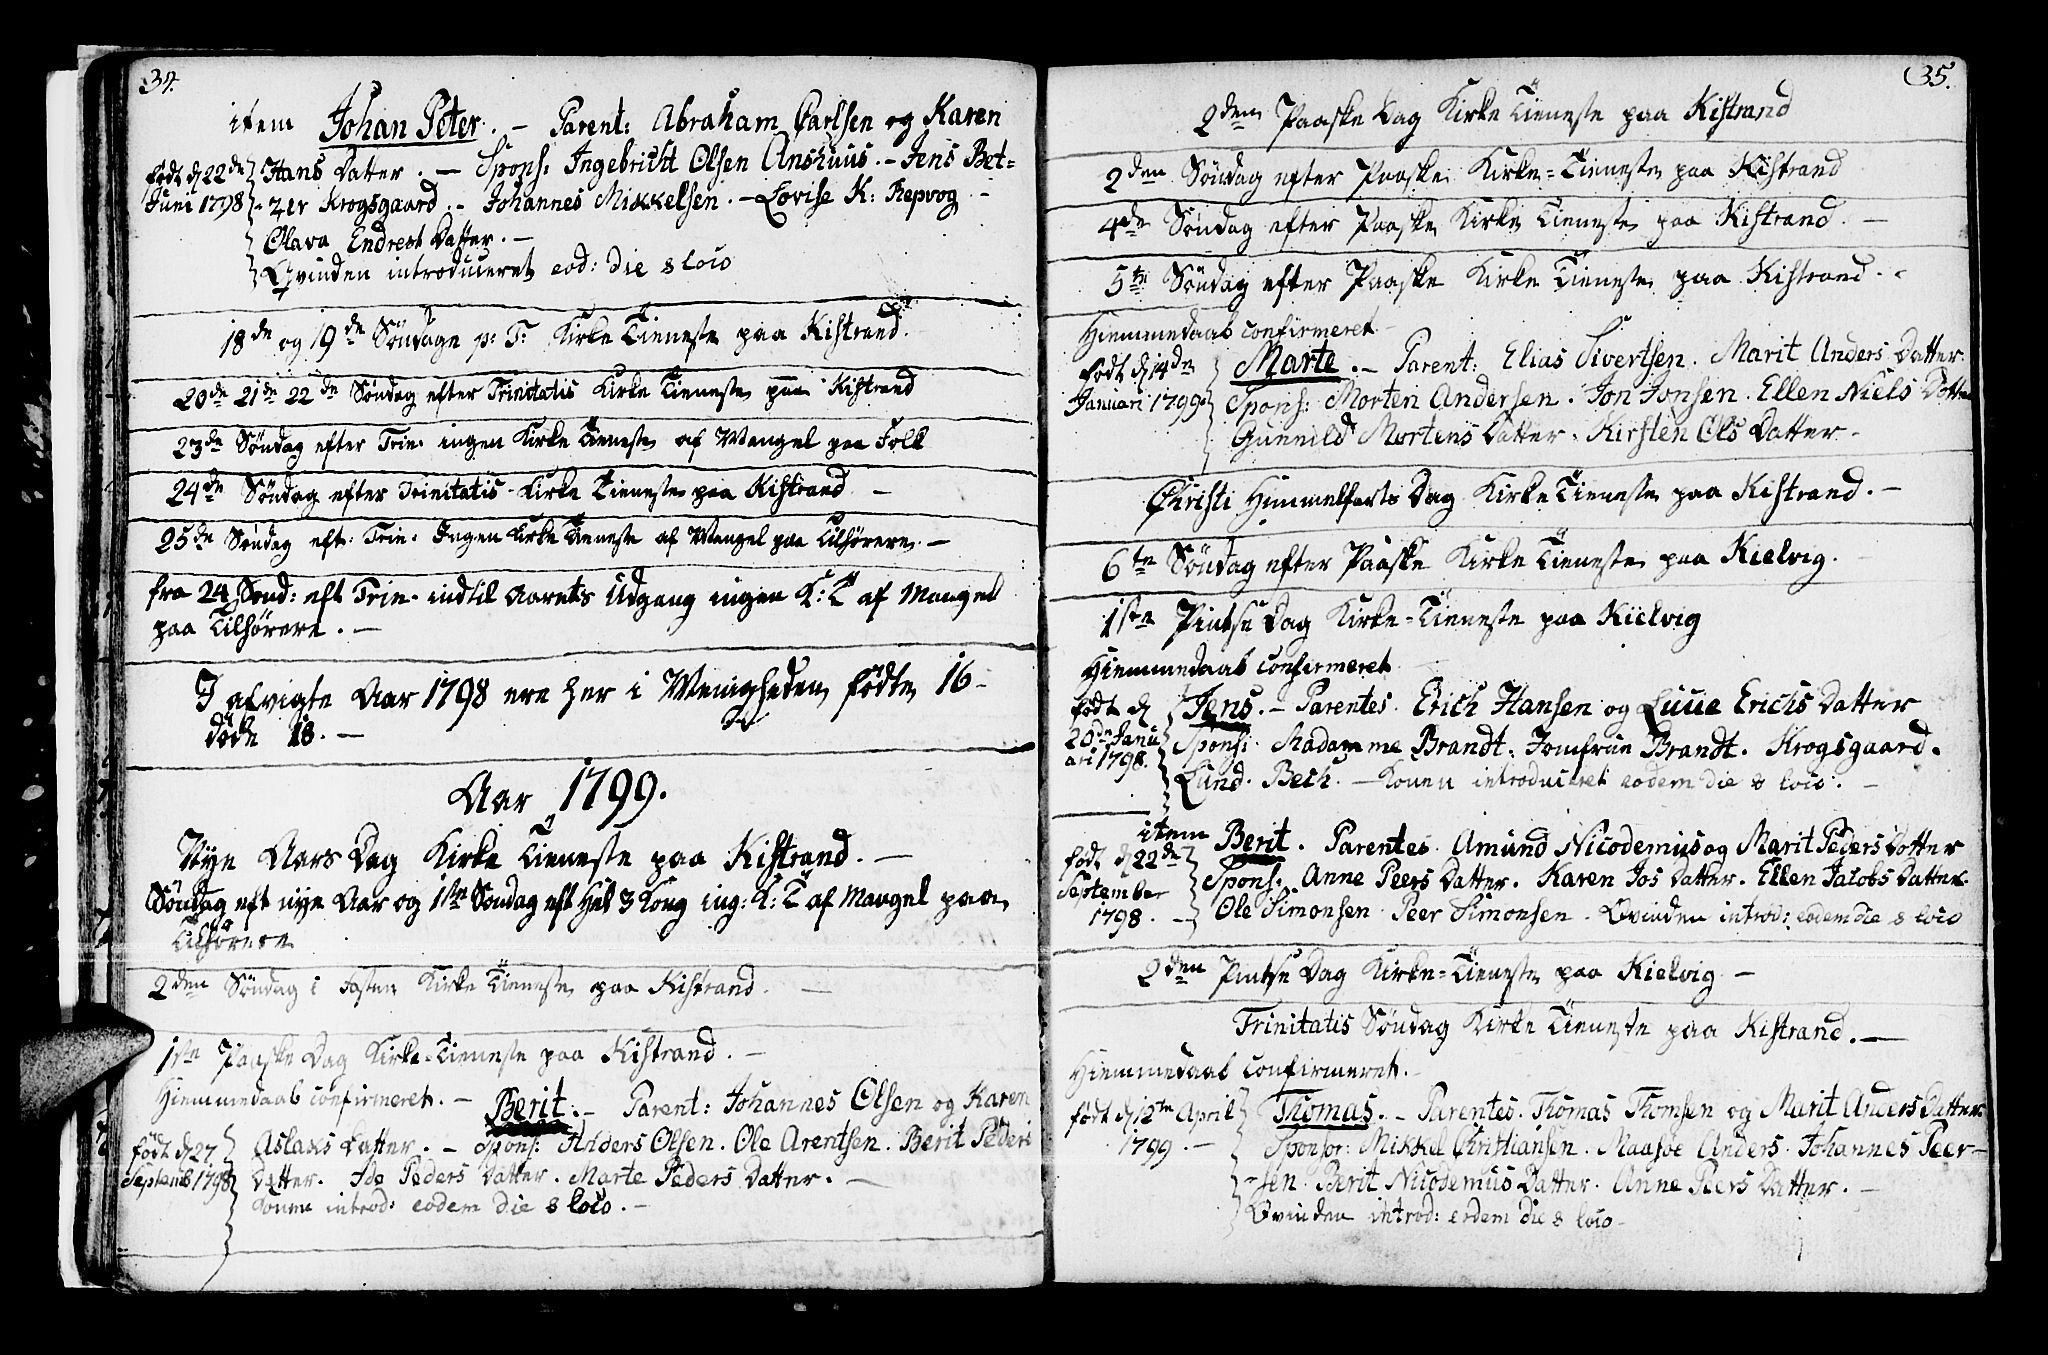 34.
item Johan Peter. – Parent: Abraham Carlsen og Karen
født d 22de Hans Datter. – Spons: Ingebricht Olsen Anshuus. – Jens Bet-
Juni 1798 -zer Krogsgaard. – Johannes Mikkelsen. – Lovise K: Repvog –
Olava Endrest Datter. –
Qvinden introduceret eod: die & loco
18de og 19de Söndage p: T: Kirke Tieneste paa Kistrand.
20de 21de 22de Söndag efter Trinitatis Kirke Tieneste paa Kistrand
23de Söndag efter Trin. ingen Kirke Tieneste af Mangel paa Folk
24de Söndag efter Trinitatis Kirke Tieneste paa Kistrand –
25de Söndag eft. Trin. Ingen Kirke Tieneste af Mangel paa Tilhörere. –
fra 24 Sönd: eft Trin. indtil Aarets Udgang ingen K: T af Mangel
paa Tilhörere. –
I afvigte Aar 1798 ere her i Menigheden födte 16 –
döde 18. –
Aar 1799.
Nye Aars Dag Kirke Tieneste paa Kistrand. –
Söndag eft nye Aar og 1ste Söndag eft Hel 3 Kong ing: K: T af Mangel paa
Tilhörere
2den Söndag i Fasten Kirke Tieneste paa Kistrand. –
1ste Paaske Dag Kirke-Tieneste paa Kistrand. –
Hiemmedaab confirmeret. – Berit. – Parent: Johannes Olsen og Karen
født d 27 Aslaks Datter. – Spons: Anders Olsen. Ole Arentsen. Berit Peders
Septemb 1798 Datter. Ide Peders Datter. Marte Peders Datter. –
Konne introd: eodem die & loco. –
35.
2den Paaske Dag Kirke Tieneste paa Kistrand
2den Söndag efter Paaske Kirke-Tieneste paa Kistrand
4de Söndag efter Paaske Kirke Tieneste paa Kistrand. –
5te Söndag efter Paaske Kirke Tieneste paa Kistrand. –
Hiemmedaab confirmeret
født d 14de Marte. – Parent: Elias Sivertsen. Marit Anders Datter.
Januari 1799 Spons: Morten Andersen. Jon Jonsen. Ellen Niels Datter
Gunnild Mortens Datter. Kirsten Ols Datter –
Christi Himmelfarts Dag Kirke Tieneste paa Kistrand. –
6te Söndag efter Paaske Kirke Tieneste paa Kielvig.
1ste Pintse Dag Kirke-Tieneste paa Kielvig
Hiemmedaab confirmeret
født d Jens. – Parentes. Erich Hansen og Luue Erichs Datter
20de Janu Spons: Madamme Brandt. Jomfrue Brandt. Krogsgaard.
ari 1798. Lund. Bech. – Konen introduceret eodem die & loco. –
item Berit. Parentes. Amund Nicodemius og Marit Peders Datter
født d 22de Spons: Anne Peers Datter. Karen Jos Datter. Ellen Jacobs Datter.
September Ole Simonsen. Peer Simonsen. Qvinden introd: eodem die & loco
1798. –
2den Pintse Dag Kirke-Tieneste paa Kielvig –
Trinitatis Söndag Kirke Tieneste paa Kistrand. –
Hiemmedaab confirmeret. –
født d 12te April Thomas. – Parentes. Thomas Thomsen og Marit Anders Datter
1799. – Sponsor: Mikkel Christiansen. Maasoe Anders. Johannes Peer-
-sen. Berit Nicodemus Datter. Anne Peers Datter. –
Qvinden introd: eodem die & loco –